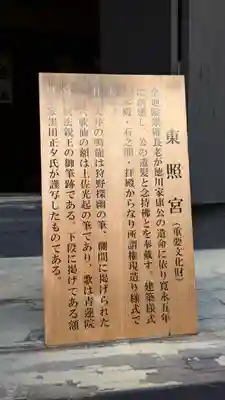 東照宮(重要文化財)
金地院崇傳長老が徳川家康公の遺命に依り寛永五年
に創建し、公の遺髪と念持佛とを奉戴す。建築様式
・石之間・拝殿からなり所謂権現造り様式で
の鳴龍は狩野探幽の筆、欄間に掲げられた
歌仙の額は土佐光起の筆であり、歌は青蓮院
法親王の御筆跡である。下段に掲げてある額
黒田正夕氏が謹写したものである。